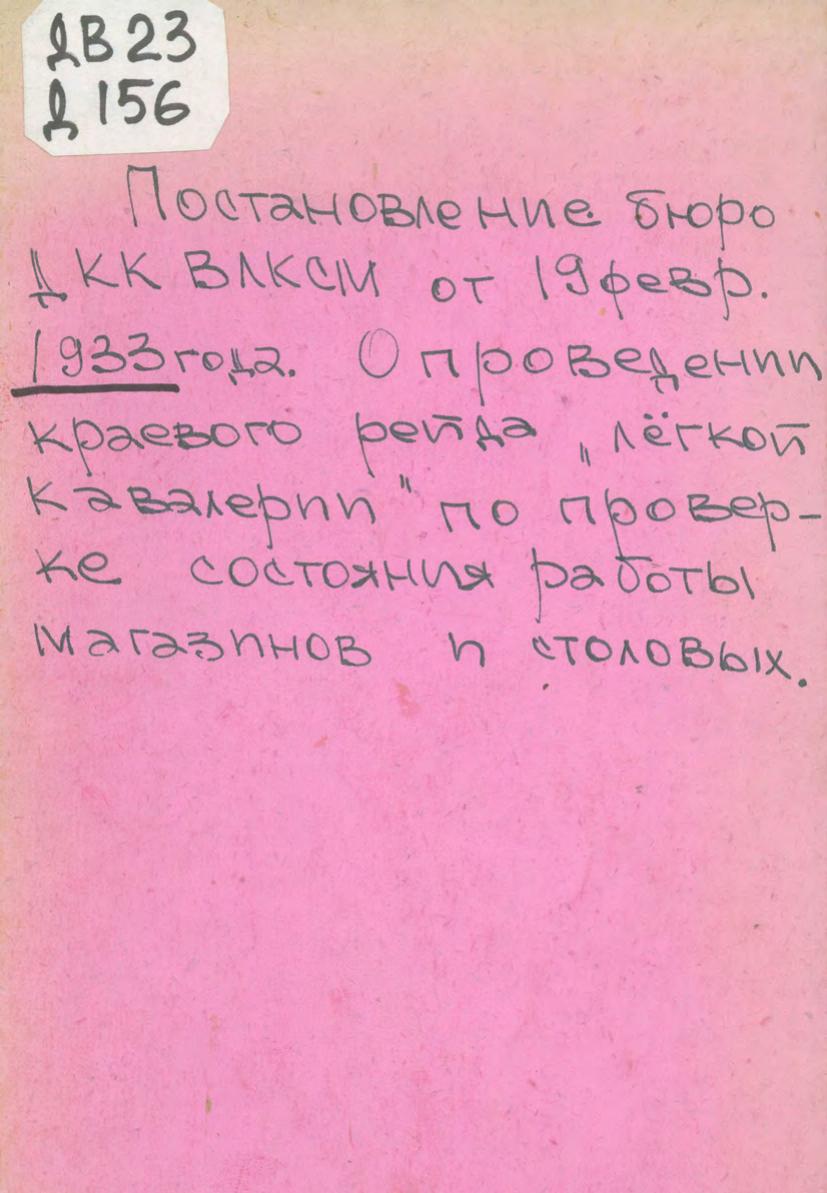 ДВ23
Д156
Постановление бюро
ДКК ВЛКСМ от 19 февр.
1933 года. О проведении
краевого рейда „лёгкой
кавалерии" по провер-
ке состояния работы
магазинов и столовых.